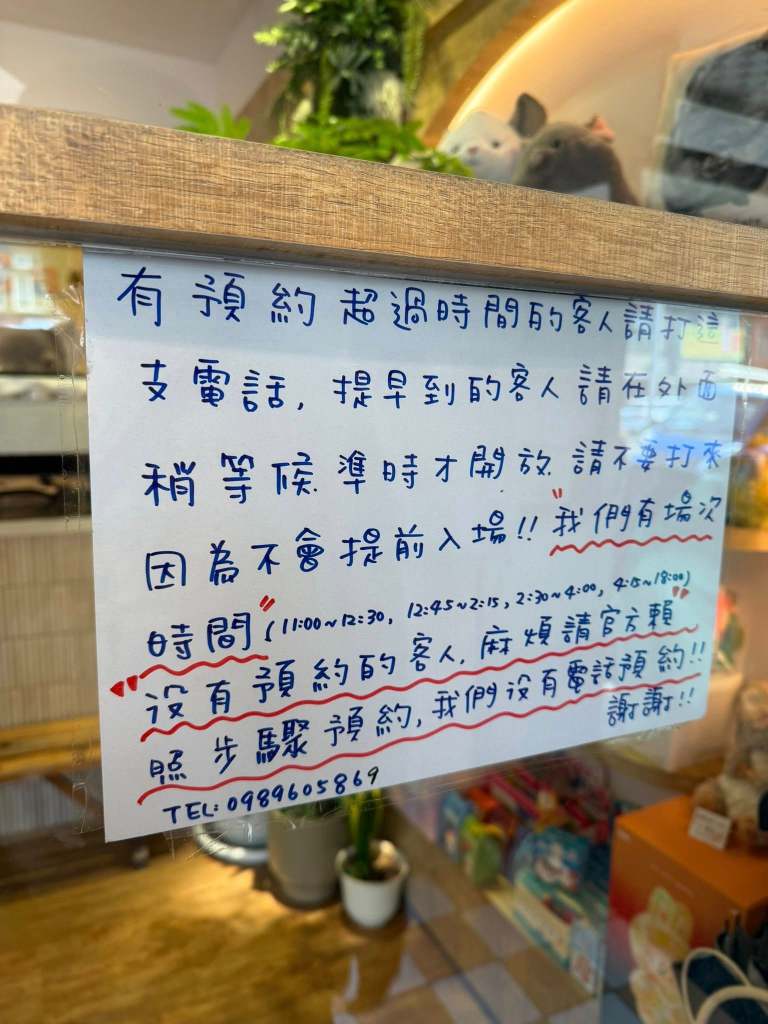 有預約超過時間的客人請打這
支電話, 提早到的客人請在外面
稍等候 準時才開放 請不要打來
因為不會提前入場!! "我們有場次
時間" (11:00~12:30, 12:45~2:15, 2:30~4:00, 4:15~18:00)
"沒有預約的客人, 麻煩請官方賴"
照步驟預約, 我們沒有電話預約!!
謝謝!!
TEL: 0989605869